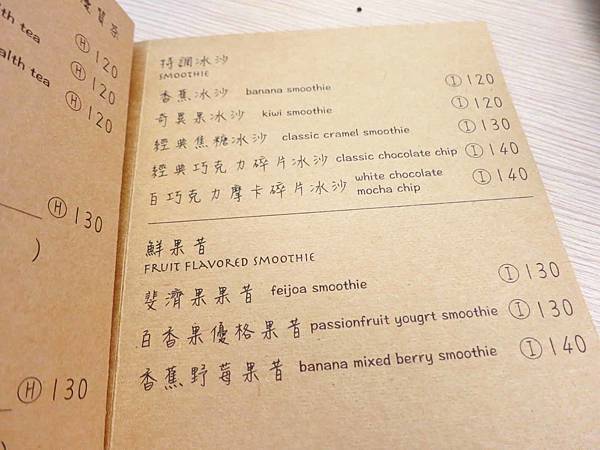 優質茶
lth tea Ⓗ 120
ealth tea Ⓗ 120
Ⓗ 120
Ⓗ 130
)
Ⓗ 130
)
特調冰沙
SMOOTHIE
香蕉冰沙 banana smoothie Ⓘ 120
奇異果冰沙 kiwi smoothie Ⓘ 120
經典焦糖冰沙 classic cramel smoothie Ⓘ 130
經典巧克力碎片冰沙 classic chocolate chip Ⓘ 140
白巧克力摩卡碎片冰沙 white chocolate mocha chip Ⓘ 140
鮮果昔
FRUIT FLAVORED SMOOTHIE
斐濟果果昔 feijoa smoothie Ⓘ 130
百香果優格果昔 passionfruit yougrt smoothie Ⓘ 130
香蕉野莓果昔 banana mixed berry smoothie Ⓘ 140